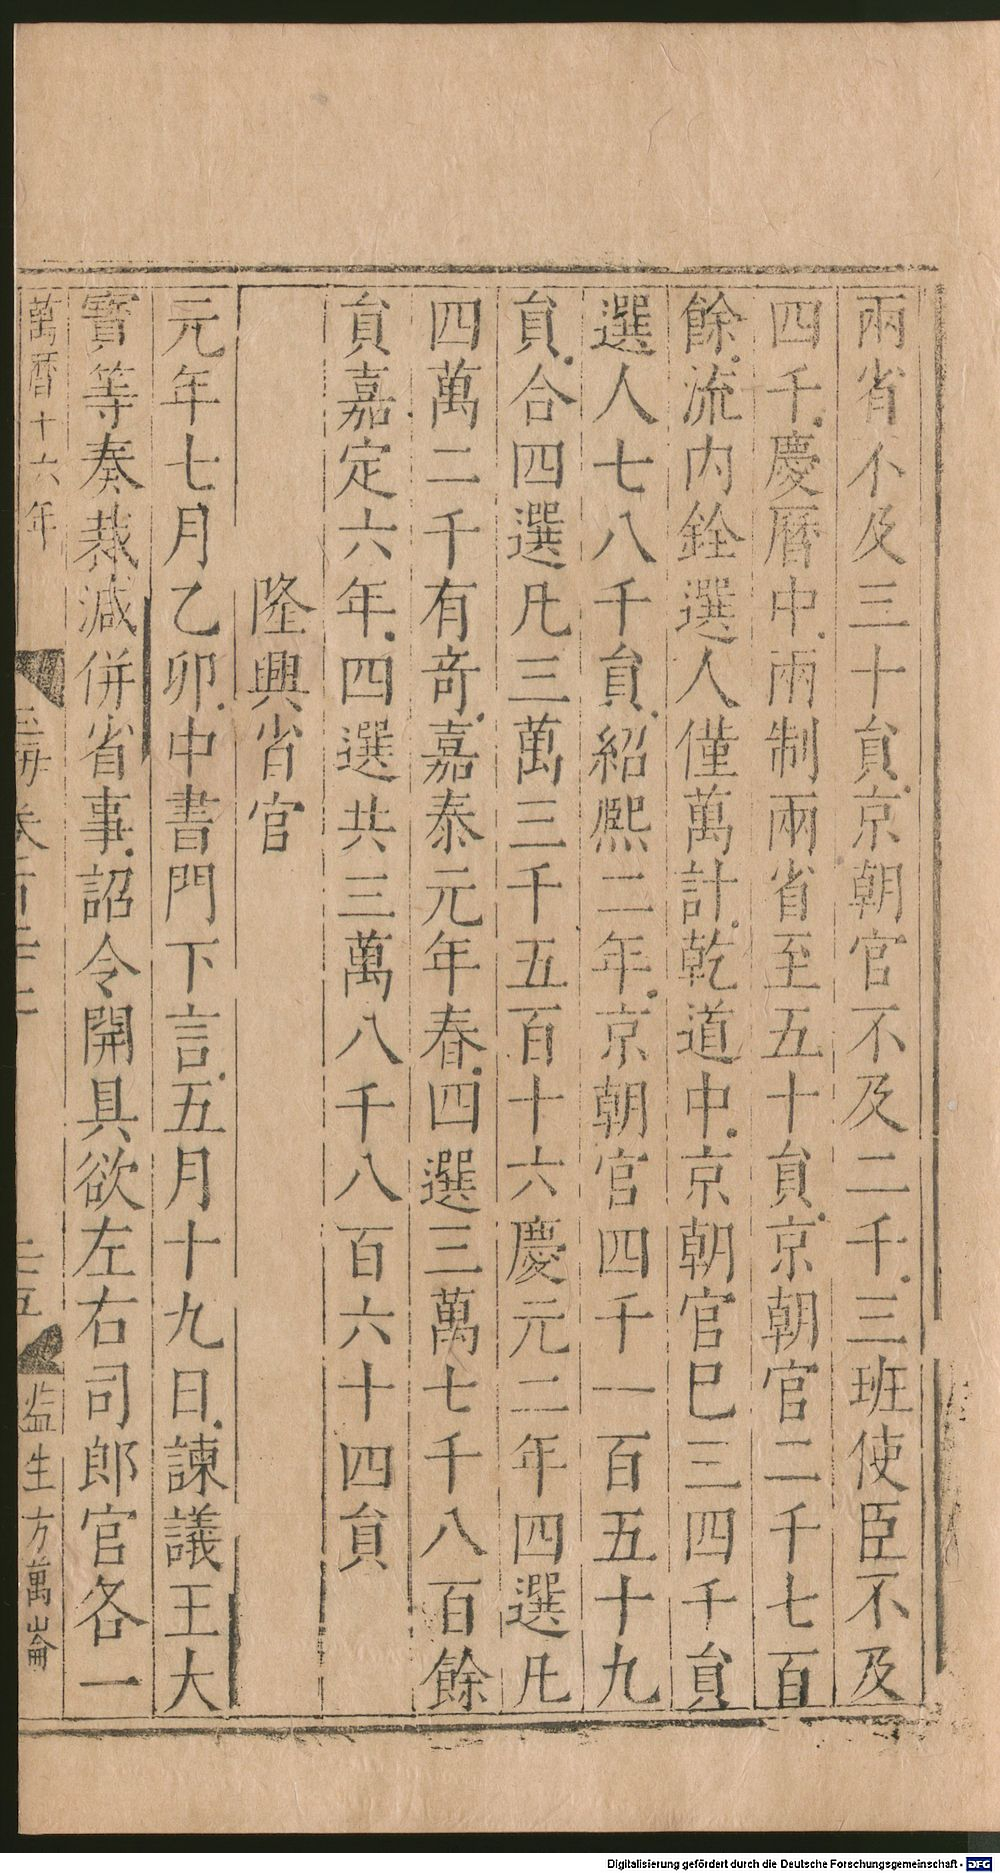 兩省不及三十貟京朝官不及二千三班使臣不及
四千慶曆中兩制兩省至五十貟京朝官二千七百
餘流内銓選人僅萬計乾道中京朝官巳三四千貟
選人七八千貟紹熙二年京朝官四千一百五十九
貟合四選凡三萬三千五百十六慶元二年四選凡
四萬二千有竒嘉泰元年春四選三萬七千八百餘
貟嘉定六年四選共三萬八千八百六十四貟
隆興省官
元年七月乙卯中書門下言五月十九日諫議王大
寳等奏裁減併省事詔令開具欲左右司郎官各一
萬曆十六年
玉海卷
二五
监生方萬崙
Digitalisierung gefördert durch die Deutsche Forschungsgemeinschaft - DFG